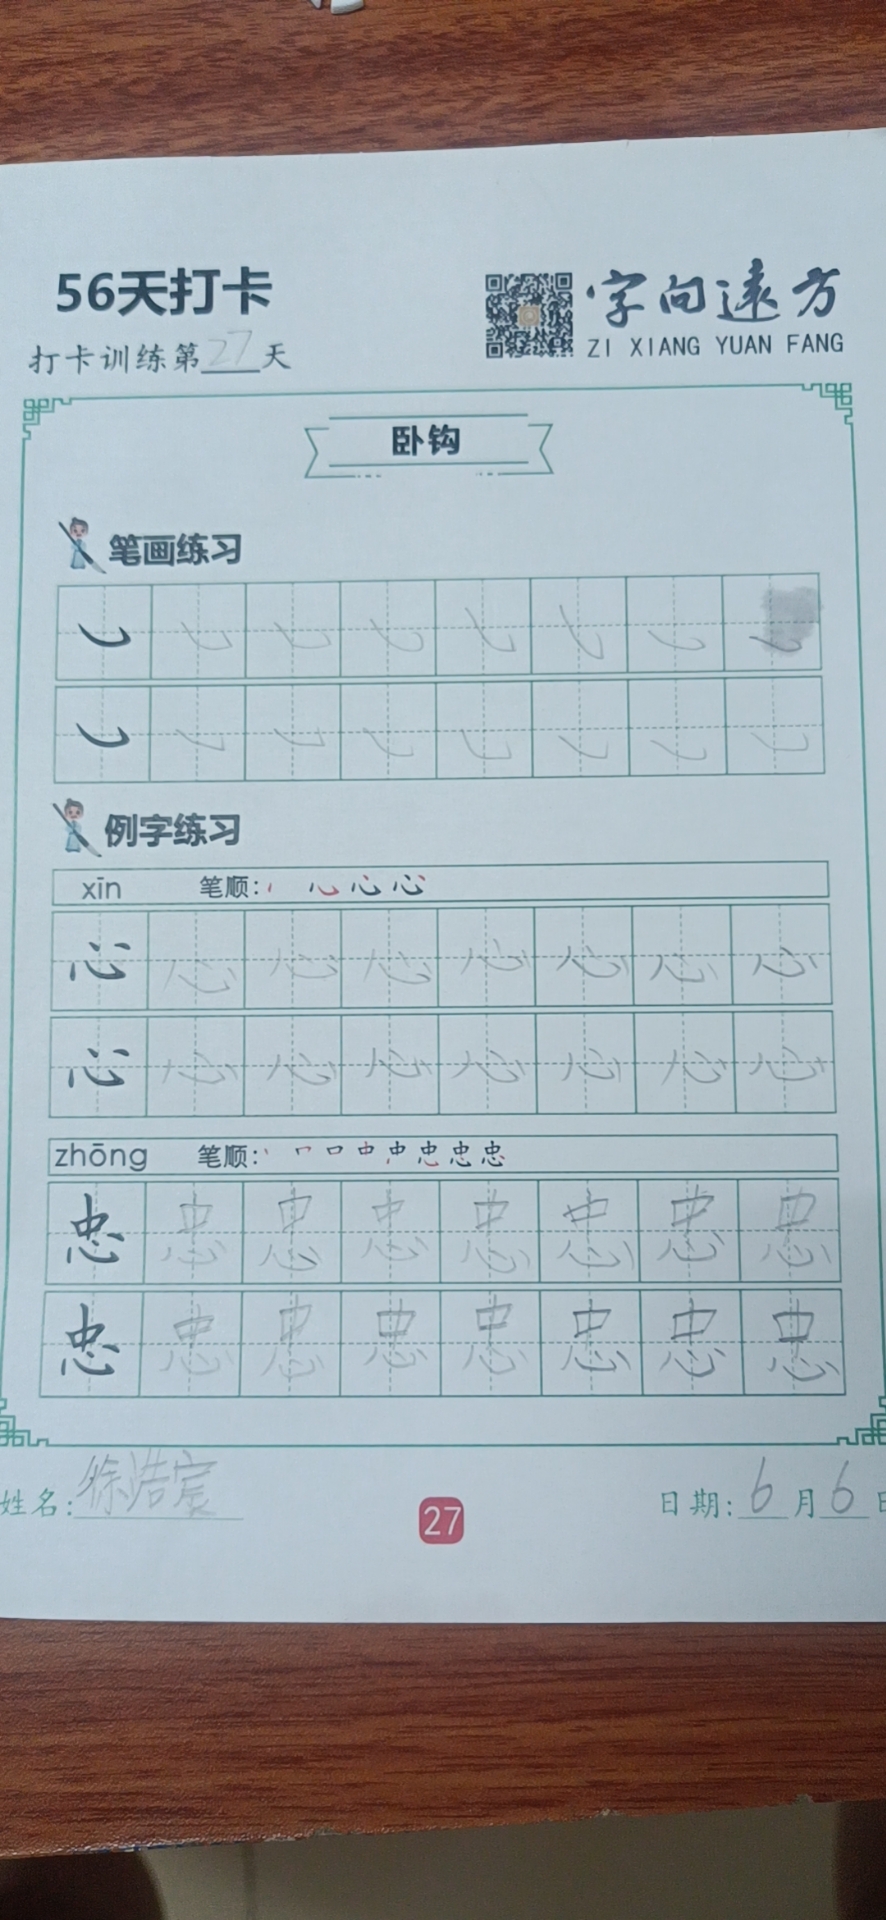 56天打卡
字向远方
ZI XIANG YUAN FANG
打卡训练第27天
卧钩
笔画练习
例字练习
xīn 笔顺:
心 心 心 心 心 心 心 心
心 心 心 心 心 心 心 心
zhōng 笔顺: 丨 冖 口 中 忠 忠 忠
忠 忠 忠 忠 忠 忠 忠 忠
忠 忠 忠 忠 忠 忠 忠 忠
姓名:徐浩宸
27
日期:6月6日